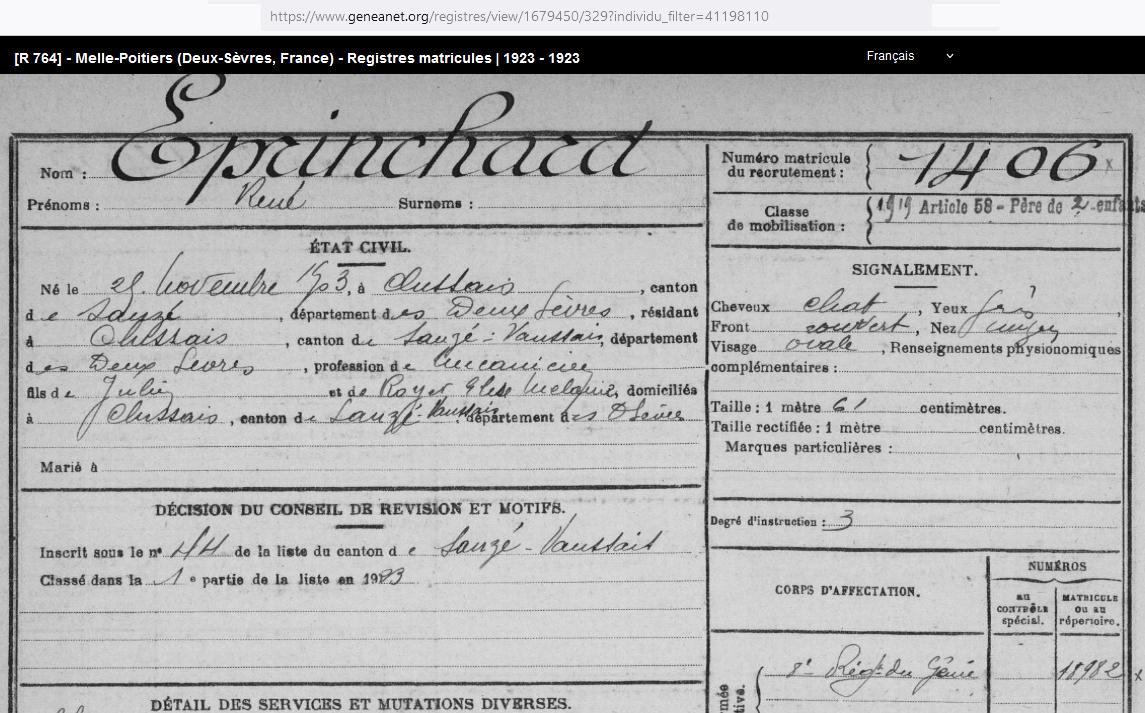 https://www.geneanet.org/registres/view/1679450/329?individu_filter=41198110
[R 764] - Melle-Poitiers (Deux-Sèvres, France) - Registres matricules | 1923 - 1923
Français
Nom : Eprinchard
Prénoms : René Surnoms :
Numéro matricule du recrutement : 1406 x
Classe de mobilisation : 1919 Article 58 - Père de 2 enfants
ÉTAT CIVIL.
Né le novembre 1903, à Clussais, canton
de Sauzé, département des Deux Sèvres, résidant
à Clussais, canton de Sauzé-Vaussais, département
des Deux Sèvres, profession de mécanicien
fils de Julien et de Royer Elise Mélanie, domiciliés
à Clussais, canton de Sauzé-Vaussais, département des D Sèvres
Marié à
SIGNALEMENT.
Cheveux chat, Yeux gris,
Front couvert, Nez moyen
Visage ovale, Renseignements physionomiques
complémentaires :
Taille : 1 mètre 61 centimètres.
Taille rectifiée : 1 mètre centimètres.
Marques particulières :
Degré d'instruction : 3
DÉCISION DU CONSEIL DE REVISION ET MOTIFS.
Inscrit sous le n° 44 de la liste du canton de Sauzé-Vaussais
Classé dans la 1e partie de la liste en 1923
CORPS D'AFFECTATION.
NUMÉROS
au CONTRÔLE spécial.
MATRICULE ou au répertoire.
8e Régt du Génie 18982 x
DÉTAIL DES SERVICES ET MUTATIONS DIVERSES.